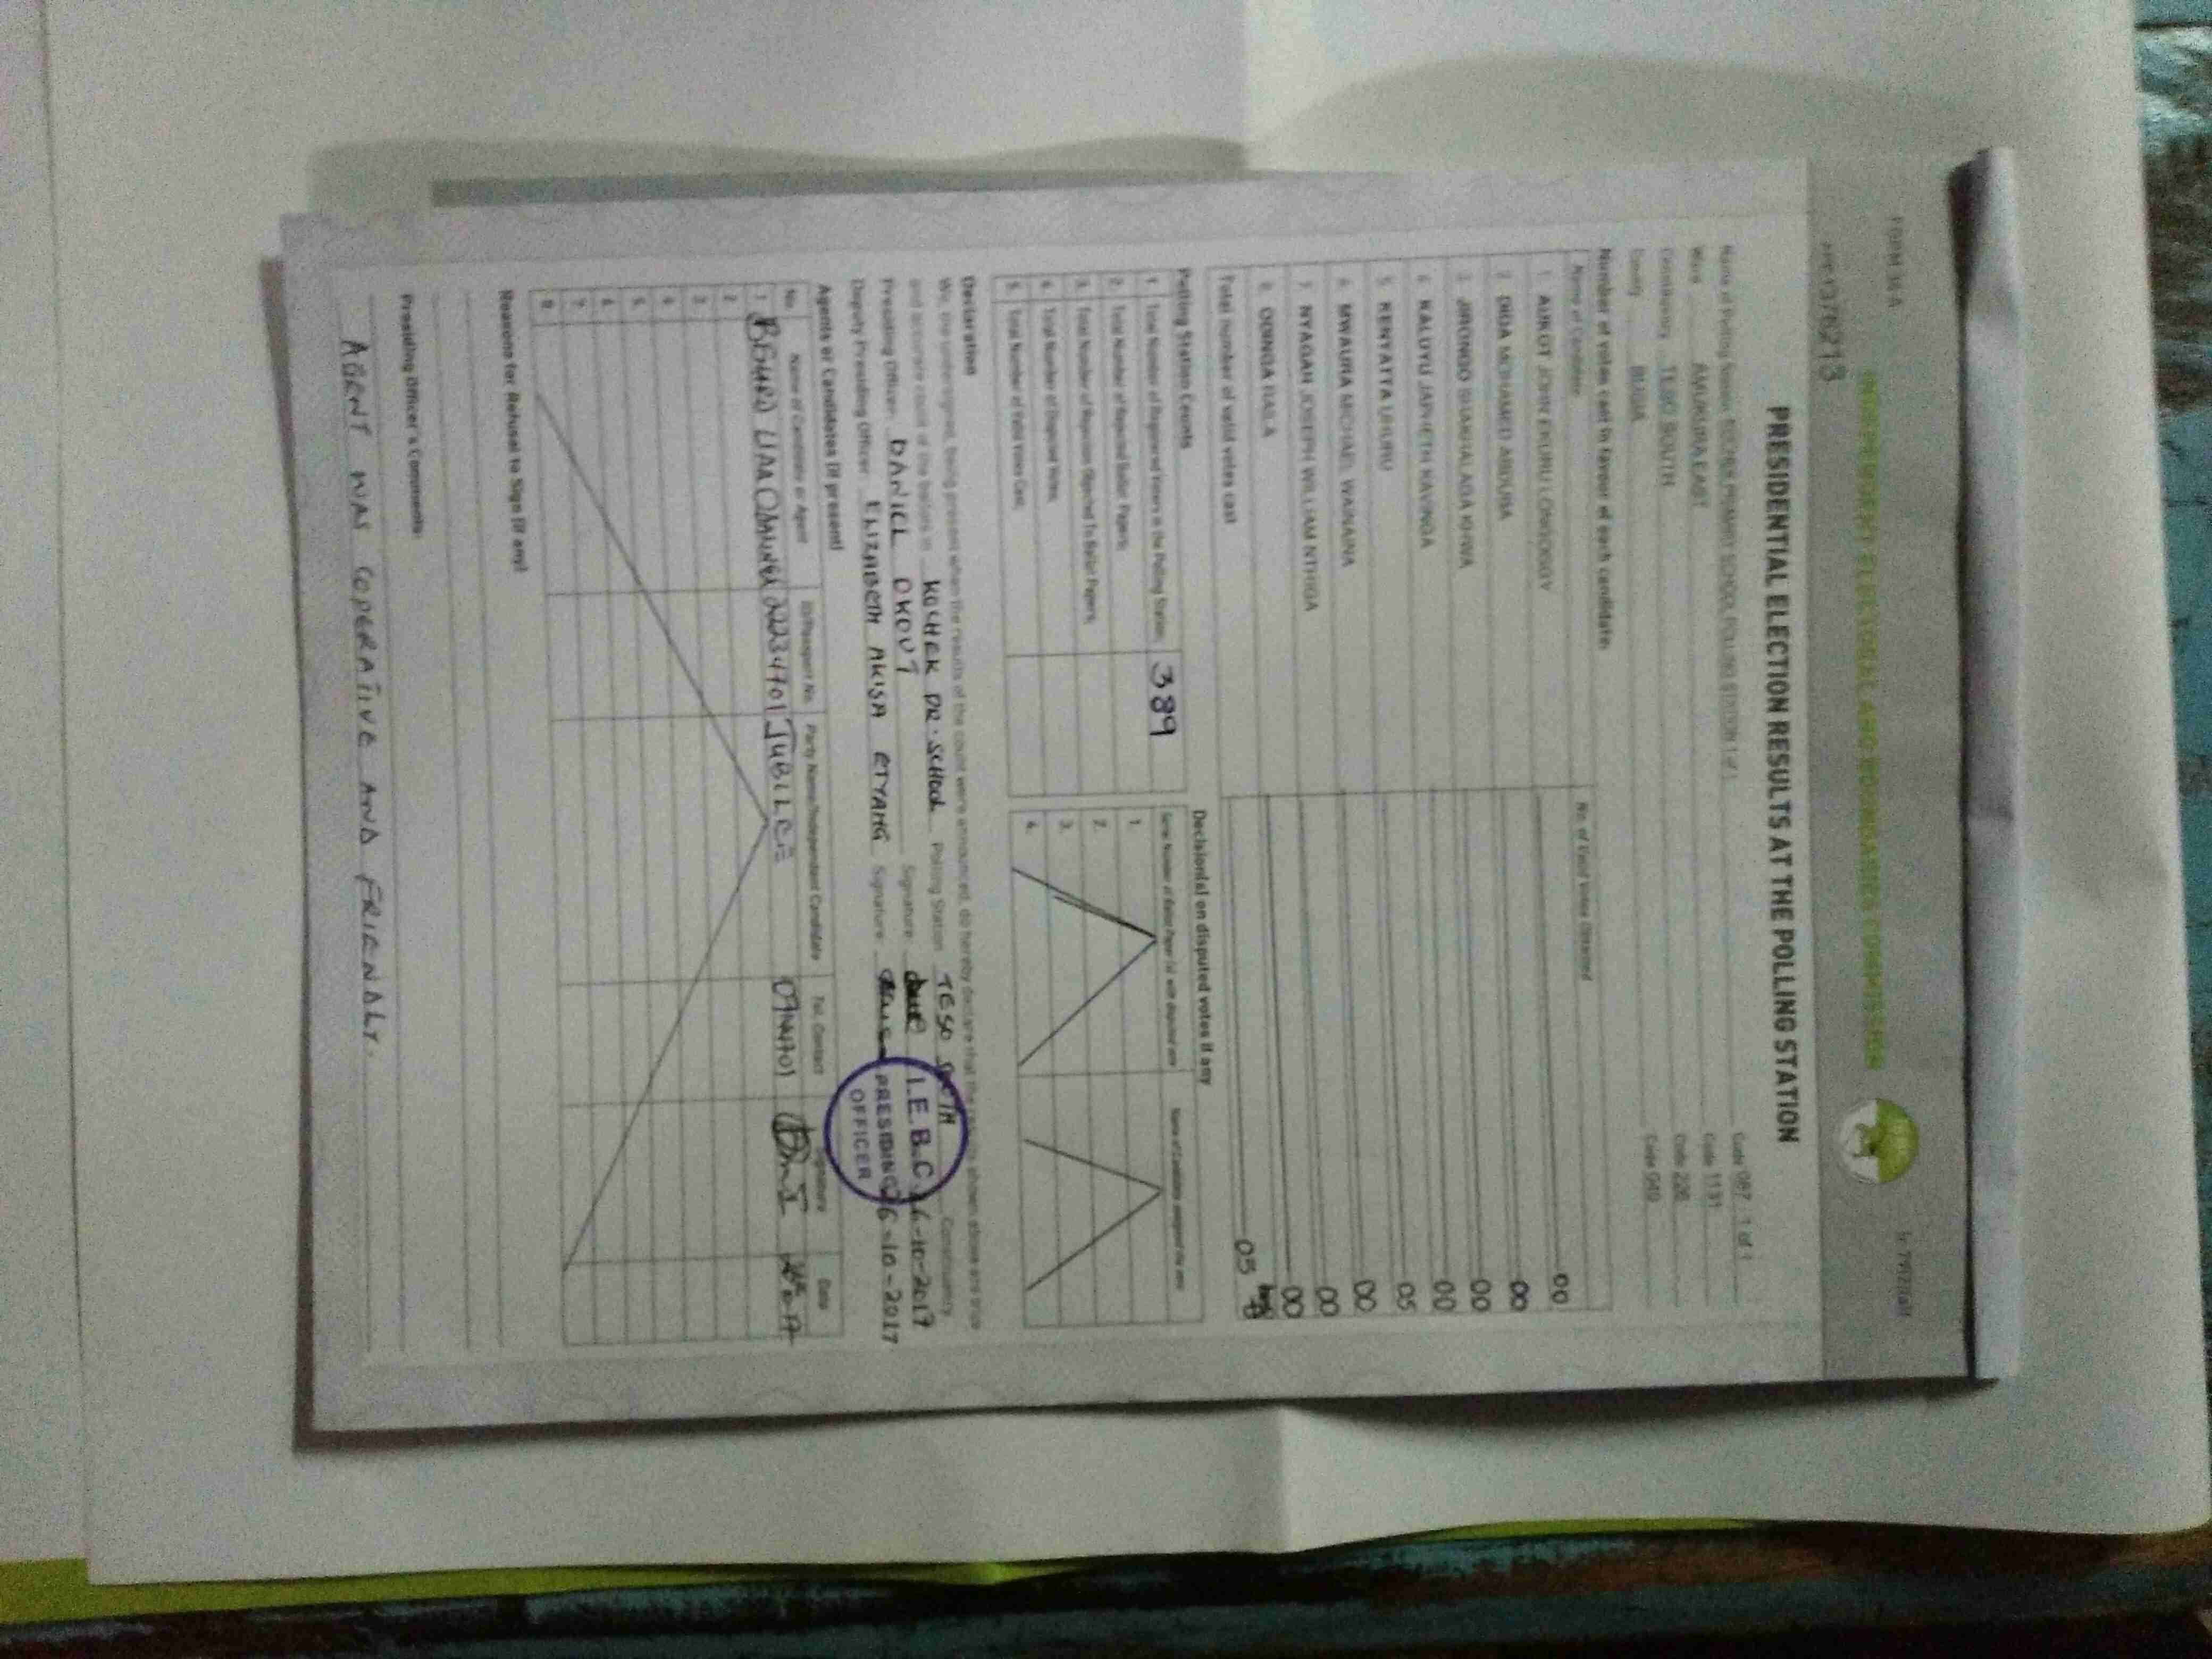 FORM 34A
INDEPENDENT ELECTORAL AND BOUNDARIES COMMISSION
PRESIDENTIAL ELECTION RESULTS AT THE POLLING STATION
Name of Polling Station PRIMARY SCHOOL POLLING STATION 1 of 1 Code 087 - 1 of 1
Ward AMUKURA EAST Code 1131
Constituency TESO SOUTH Code 226
County BUSIA Code 040
Number of votes cast in favour of each candidate
Name of Candidate No. of Valid Votes Obtained
1. AUKOT JOHN EKURU LONGOGGY 00
2. DIDA MOHAMED ABDUBA 00
3. JIRONGO SHAKHALAGA KHWA 00
4. KALUYU JAPHETH KAVINGA 00
5. KENYATTA UHURU 05
6. MWAURA MICHAEL WAINAINA 00
7. NYAGAH JOSEPH WILLIAM NTHIGA 00
8. ODINGA RAILA
Total number of valid votes cast 05
Polling Station Counts
1. Total Number of Registered Voters in the Polling Station 389
2. Total Number of Rejected Ballot Papers
3. Total Number of Rejection Objected To Ballot Papers
4. Total Number of Disputed Votes
5. Total Number of Valid Votes Cast
Decision(s) on disputed votes if any
1.
2.
3.
4.
Declaration
We, the undersigned, being present when the results of the count were announced, do hereby declare that the results shown above are true
and accurate count of the ballots in KOCHEK PR. SCHOOL Polling Station TESO Constituency
Presiding Officer: DANIEL OKOUT Signature 26-10-2017
Deputy Presiding Officer ELIZABETH AKISA ETYANG Signature 26-10-2017
I.E.B.C
PRESIDING
OFFICER
Agents or Candidates (if present)
No. Name of Candidate or Agent ID/Passport No. Party Name/Independent Candidate Tel. Contact Signature Date
1 22234701 JUBILEE
2
3
4
5
6
7
8
Reasons for Refusal to Sign (if any)
Presiding Officer's Comments
AGENT WAS COPERATIVE AND FRIENDLY.